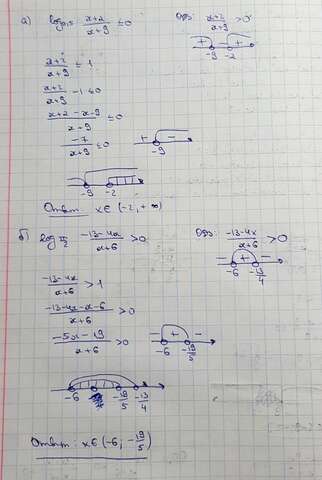 а) log₀,₅ (x+2)/(x+9) ≤ 0 ОДЗ: (x+2)/(x+9) > 0
+ - +
-9 -2
(x+2)/(x+9) ≤ 1
(x+2)/(x+9) - 1 ≤ 0
(x+2-x-9)/(x+9) ≤ 0
-7/(x+9) ≤ 0
+ -
-9
-9 -2
Ответ: x∈(-2, +∞)
б) log π/2 (-13-4x)/(x+6) > 0 ОДЗ: (-13-4x)/(x+6) > 0
- + -
-6 -13/4
(-13-4x)/(x+6) > 1
(-13-4x-x-6)/(x+6) > 0
(-5x-19)/(x+6) > 0
- + -
-6 -19/5
-6 -19/5 -13/4
Ответ: x∈(-6, -19/5)